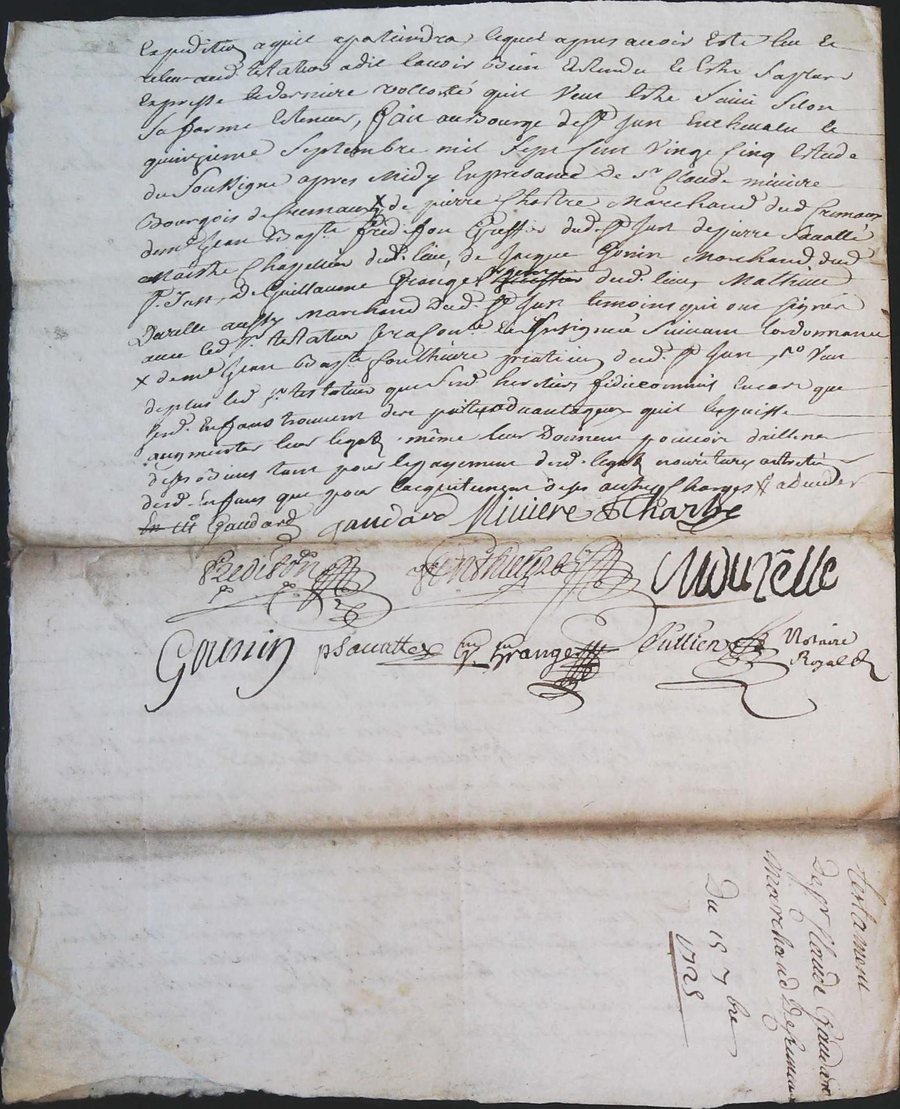 Expedition a quil apartiendra lequel apres avoir este lu et
releu aud testateur a dit lavoir bien entendu et estre sa plus
expresse et derniere vollonté quil veut estre suivi selon
sa forme et teneur, fait au Bourg de St Jun le
quinzieme Septembre mil sept cens vingt cinq estude
du soussigne apres midy en presance de Sr Claude miviere
Bourgois de Cremaux x de pierre Chartre Marchand dud Cremaux
de me Jean Bapte fredison Greffier dud. St Jun de pierre Sauatté
Maistre Chapellier dud. lieu, de Jacque Gonin Marchand dud
St. Jun, de Guillaume Grange dud. lieu, Mathieu
aussy marchand dud. St Jun temoins qui ont signés
avec led Sr testateur et soussigné suivant lordonnance
x de me Jean Bapte praticien dud. St Jun
de plus led Sr testateur que sesd. heretiers fideicommis encore que
sesd. Enfans trouvent des partis advantageux quil le puisse
augmenter leur legat même leur donnent pouvoir daillene
de ses biens tant pour le payement desd. legats nouriture entretien
desd. Enfans que pour lacquitement de ses autres Charges
Gaudard gaudard Miviere Chartre
fredison Mourelle
Gounin pSauatte Gm Grange Jullien Notaire
Royal
testament
de Sr Claude Gaudard
Marchand de
Du 15 7bre
1725